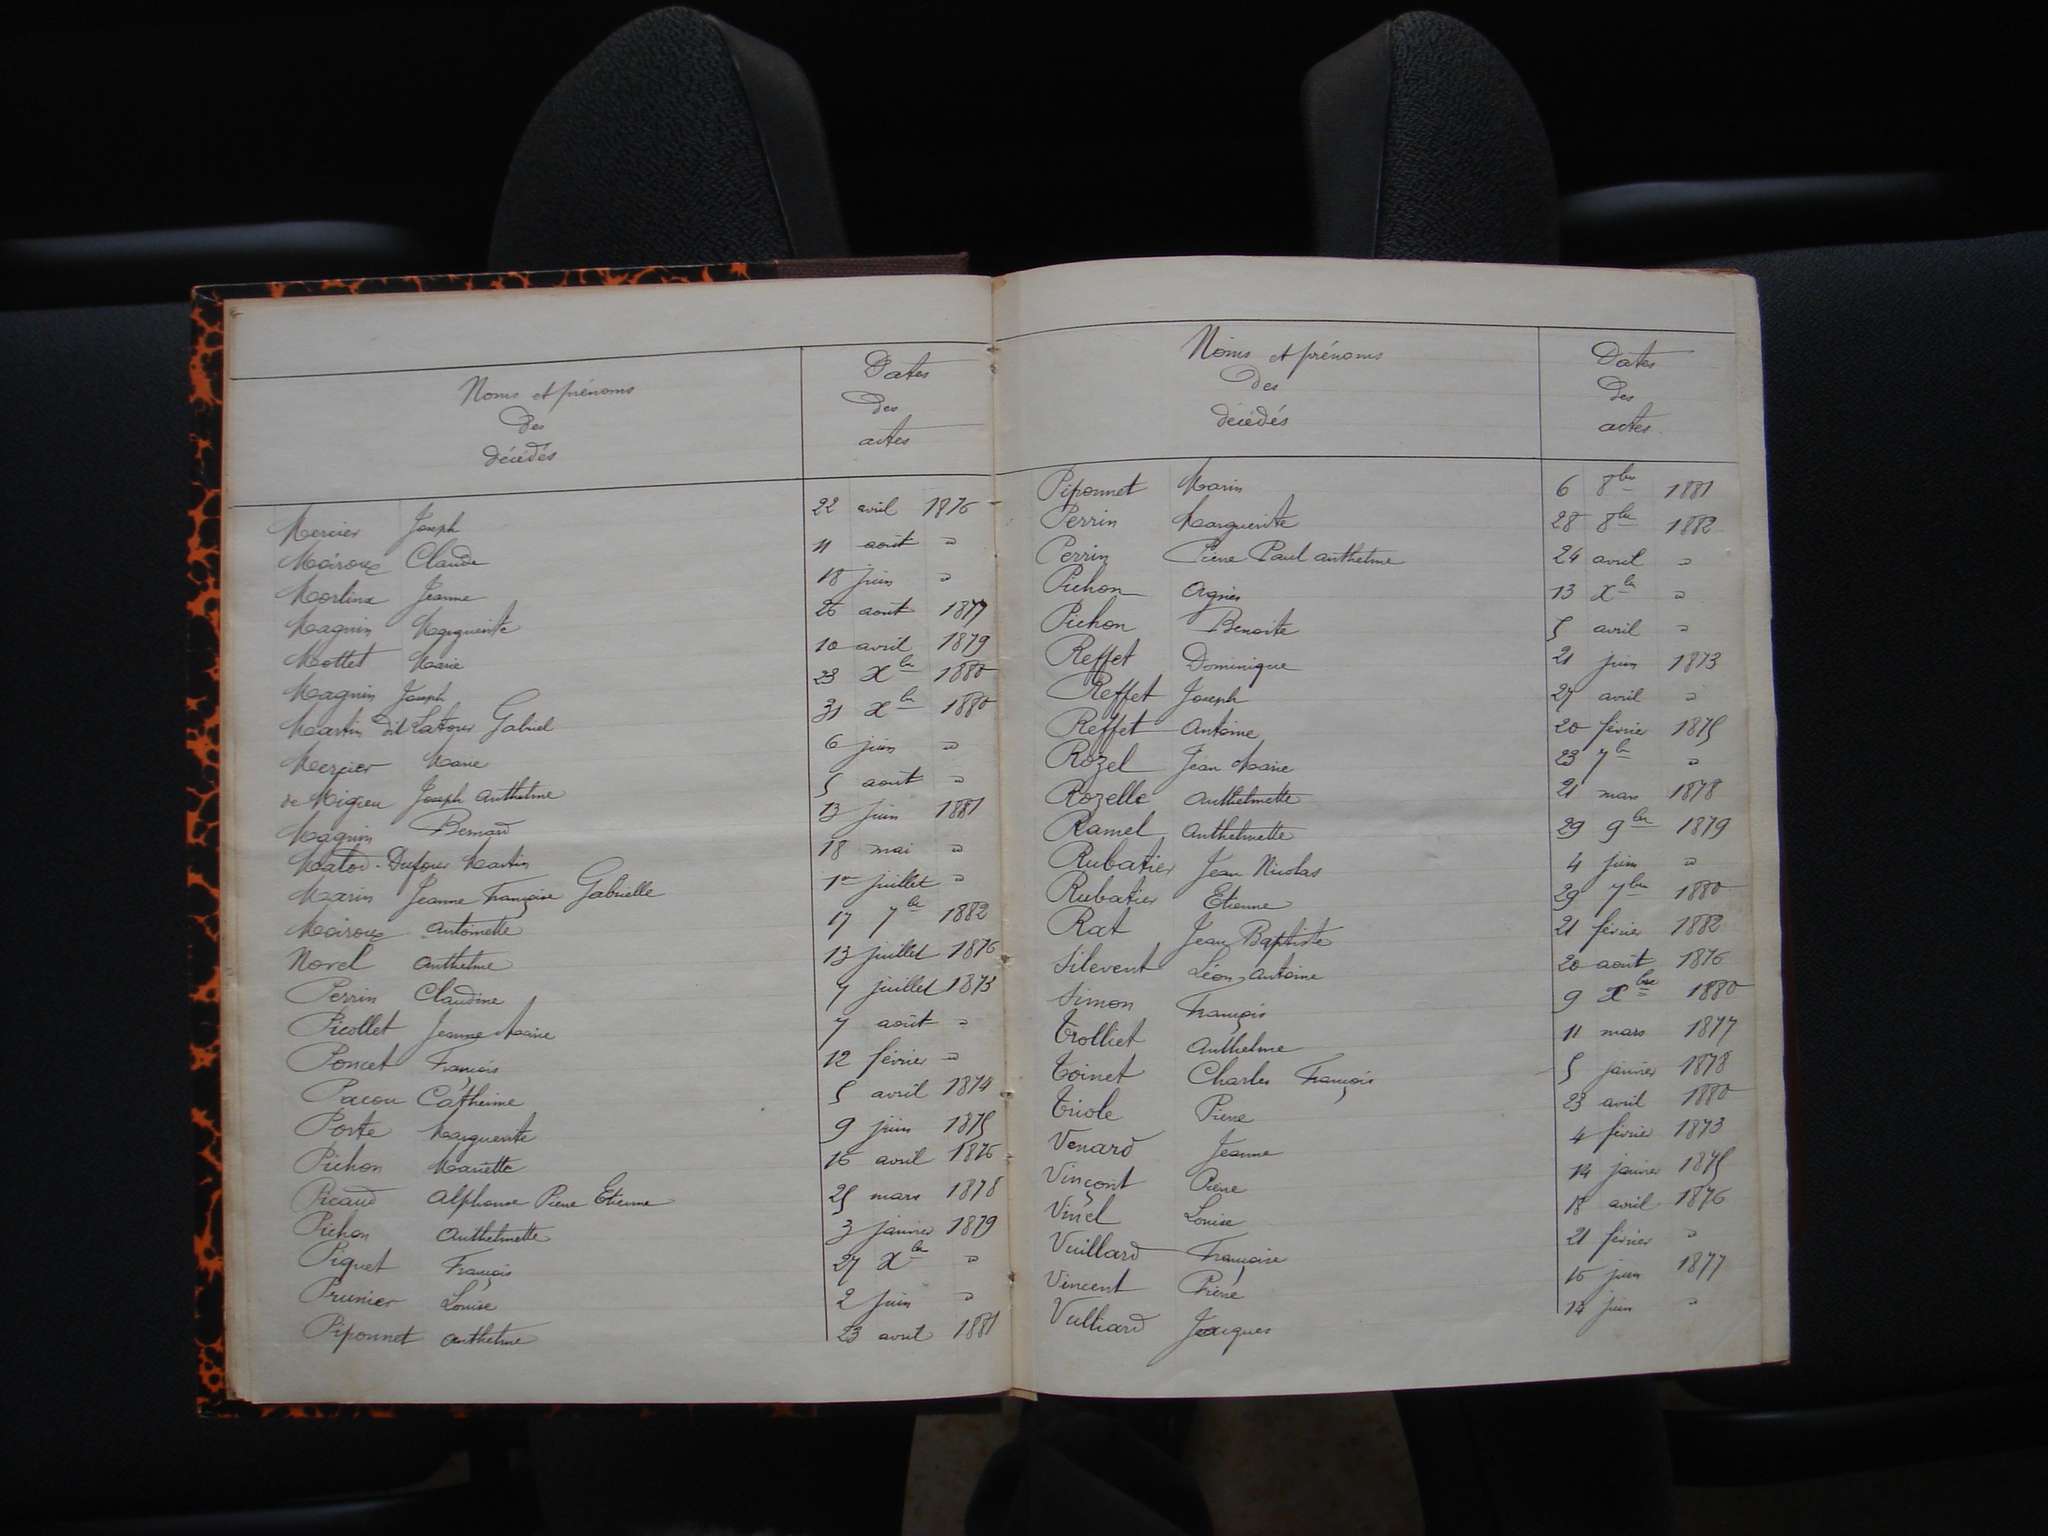 Noms et prénoms
des
décédés
Dates
des
actes
Mercier Joseph 22 avril 1876
Moiroux Claude 11 août "
Morlina Jeanne 18 juin "
Magnin Marguerite 26 août 1877
Mottet Marie 10 avril 1879
Magnin Joseph 23 Xbre 1880
Martin dit Latour Gabriel 31 Xbre 1880
Mercier Marie 6 juin "
de Migieu Joseph Anthelme 5 août "
Magnin Bernard 13 juin 1881
Dufour Martin 18 mai "
Marin Jeanne Françoise Gabrielle 1er juillet "
Moiroux Antoinette 17 7bre 1882
Norel Anthelme 13 juillet 1876
Perrin Claudine 7 juillet 1873
Picollet Jeanne Marie 7 août "
Poncet François 12 février "
Pacou Catherine 5 avril 1874
Porte Marguerite 9 juin 1875
Pichon Mariette 16 avril 1876
Picaud Alphonse Pierre Etienne 25 mars 1878
Pichon Anthelmette 3 janvier 1879
Piquet François 27 Xbre "
Prunier Louise 2 juin "
Piponnet Anthelme 23 avril 1881
Noms et prénoms
des
décédés
Dates
des
actes
Piponnet Marin 6 8bre 1881
Perrin Marguerite 28 8bre 1882
Perrin Pierre Paul Anthelme 24 avril "
Pichon Agnès 13 Xbre "
Pichon Benoite 5 avril "
Reffet Dominique 21 juin 1873
Reffet Joseph 27 avril "
Reffet Antoine 20 février 1875
Rozel Jean Marie 23 7bre "
Rozelle Anthelmette 21 mars 1878
Ramel Anthelmette 29 9bre 1879
Rubatier Jean Nicolas 4 juin "
Rubatier Etienne 29 7bre 1880
Rat Jean Baptiste 21 février 1882
Silevent Léon Antoine 20 août 1876
Simon François 9 Xbre 1880
Trolliet Anthelme 11 mars 1877
Toinet Charles François 5 janvier 1878
Triole Pierre 23 avril 1880
Venard Jeanne 4 février 1873
Vinçont Pierre 14 janvier 1875
Vinel Louise 18 avril 1876
Vuillard Françoise 21 février "
Vincent Pierre 16 juin 1877
Vulliard Jacques 14 juin "